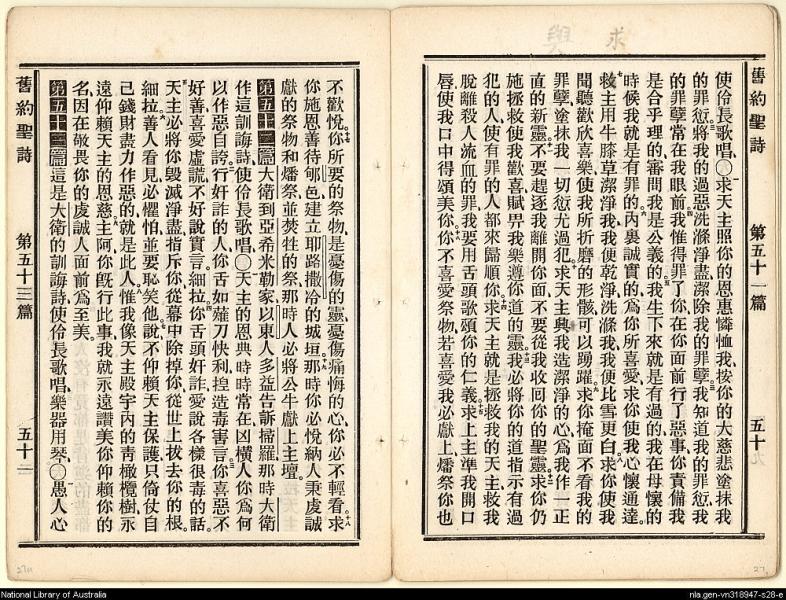 求
舊約聖詩 第五十一篇 五十
使伶長歌唱〇求天主照你的恩惠憐恤我按你的大慈悲塗抹我
的罪愆將我的過惡洗滌淨盡潔除我的罪孽我知道我的罪愆我
的罪孽常在我眼前我惟得罪了你在你面前行了惡事你責備我
是合乎理的審問我是公義的我生下來就是有過的我在母懷的
時候我就是有罪的內裏誠實的為你所喜愛求你使我心懷通達
求主用牛膝草潔淨我我便乾淨洗滌我我便比雪更白求你使我
聞聽歡欣喜樂使我所折磨的形骸可以踴躍求你掩面不看我的
罪孽塗抹我一切愆尤過犯求天主與我造潔淨的心為我作一正
直的新靈不要趕逐我離開你面不要從我收囘你的聖靈求你仍
施拯救使我歡喜賦畀我樂遵你道的靈我必將你的道指示有過
犯的人使有罪的人都來歸順你求天主就是拯救我的天主救我
脫離殺人流血的罪我要用舌頭歌頌你的仁義求上主準我開口
唇使我口中得頌美你你不喜愛祭物若喜愛我必獻上燔祭你也
不歡悅你所要的祭物是憂傷的靈憂傷痛悔的心你必不輕看求
你施恩善待郇邑建立耶路撒冷的城垣那時你必悅納人秉虔誠
獻的祭物和燔祭並焚牲的祭那時人必將公牛獻上主壇
第五十二篇大衛到亞希米勒家以東人多益告訴掃羅那時大衛
作這訓誨詩使伶長歌唱〇天主的恩典時時常在凶橫人你為何
以作惡自誇行奸詐的人你舌如薙刀快利捏造毒害言你喜惡不
好善喜愛虛謊不好說實言細拉你舌頭奸詐愛說各樣很毒的話
天主必將你毀滅淨盡指斥你從幕中除掉你從世上拔去你的根
細拉善人看見必懼怕並要恥笑他說不仰賴天主保護只倚仗自
己錢財盡力作惡的就是此人惟我像天主殿宇內的青橄欖樹永
遠仰賴天主的恩慈主阿你既行此事我就永遠讚美你仰賴你的
名因在敬畏你的虔誠人面前為至美
第五十三篇這是大衛的訓誨詩使伶長歌唱樂器用琴〇愚人心
舊約聖詩 第五十三篇 五十
National Library of Australia
nla.gen-vn318947-s28-e